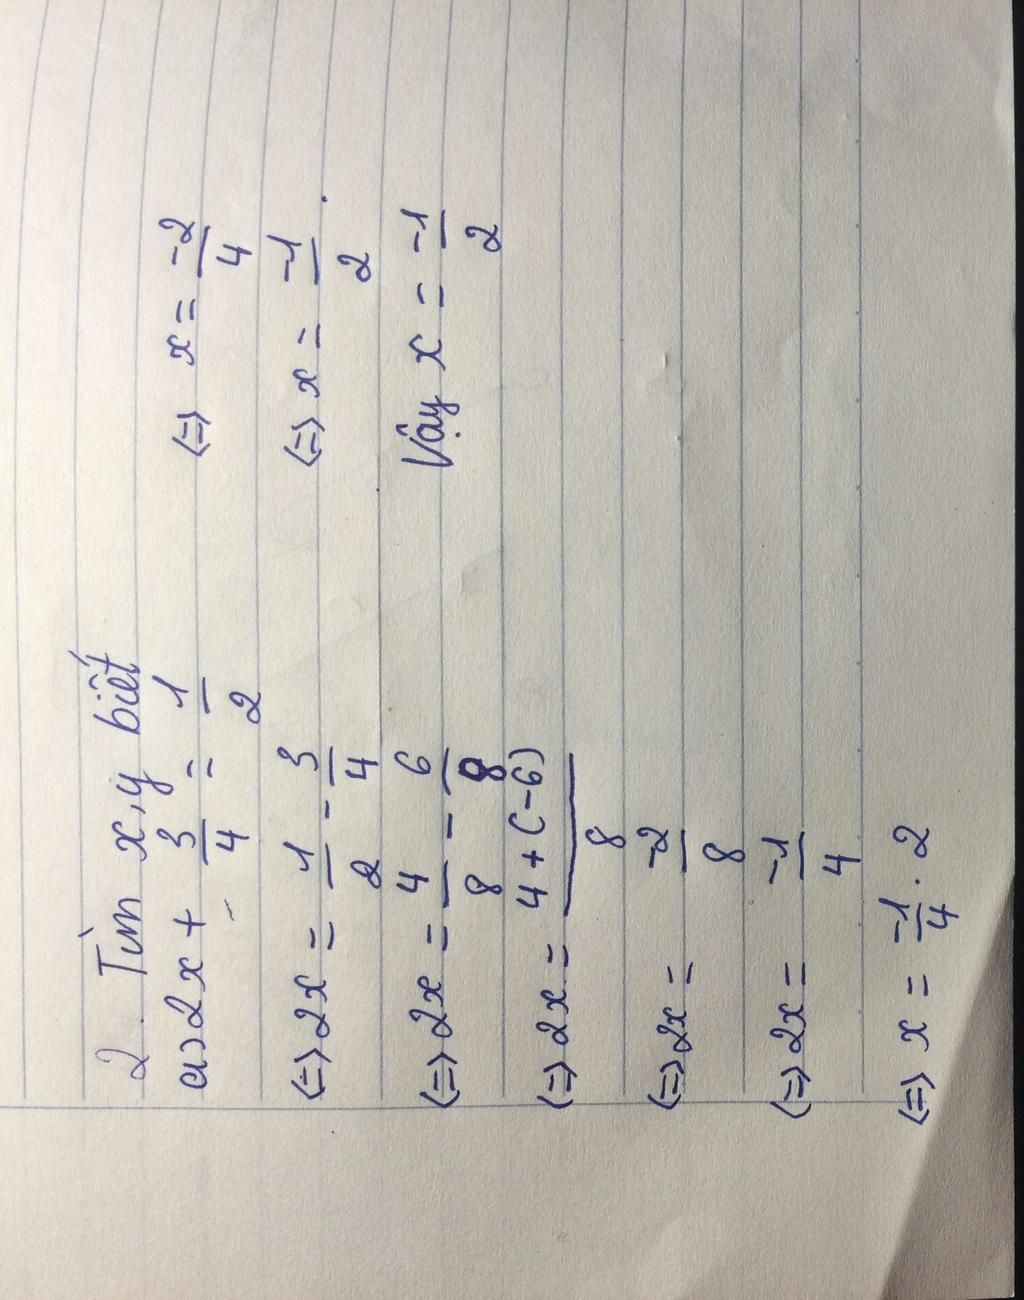 2. Tìm x,y biết
a) 2x + 3/4 = 1/2
(=) 2x = 1/2 - 3/4
(=) 2x = 4/8 - 6/8
(=) 2x = 4 + (-6)/8
(=) 2x = -2/8
(=) 2x = -1/4
(=) x = -1/4 . 2
(=) x = -2/4
(=) x = -1/2.
Vậy x = -1/2